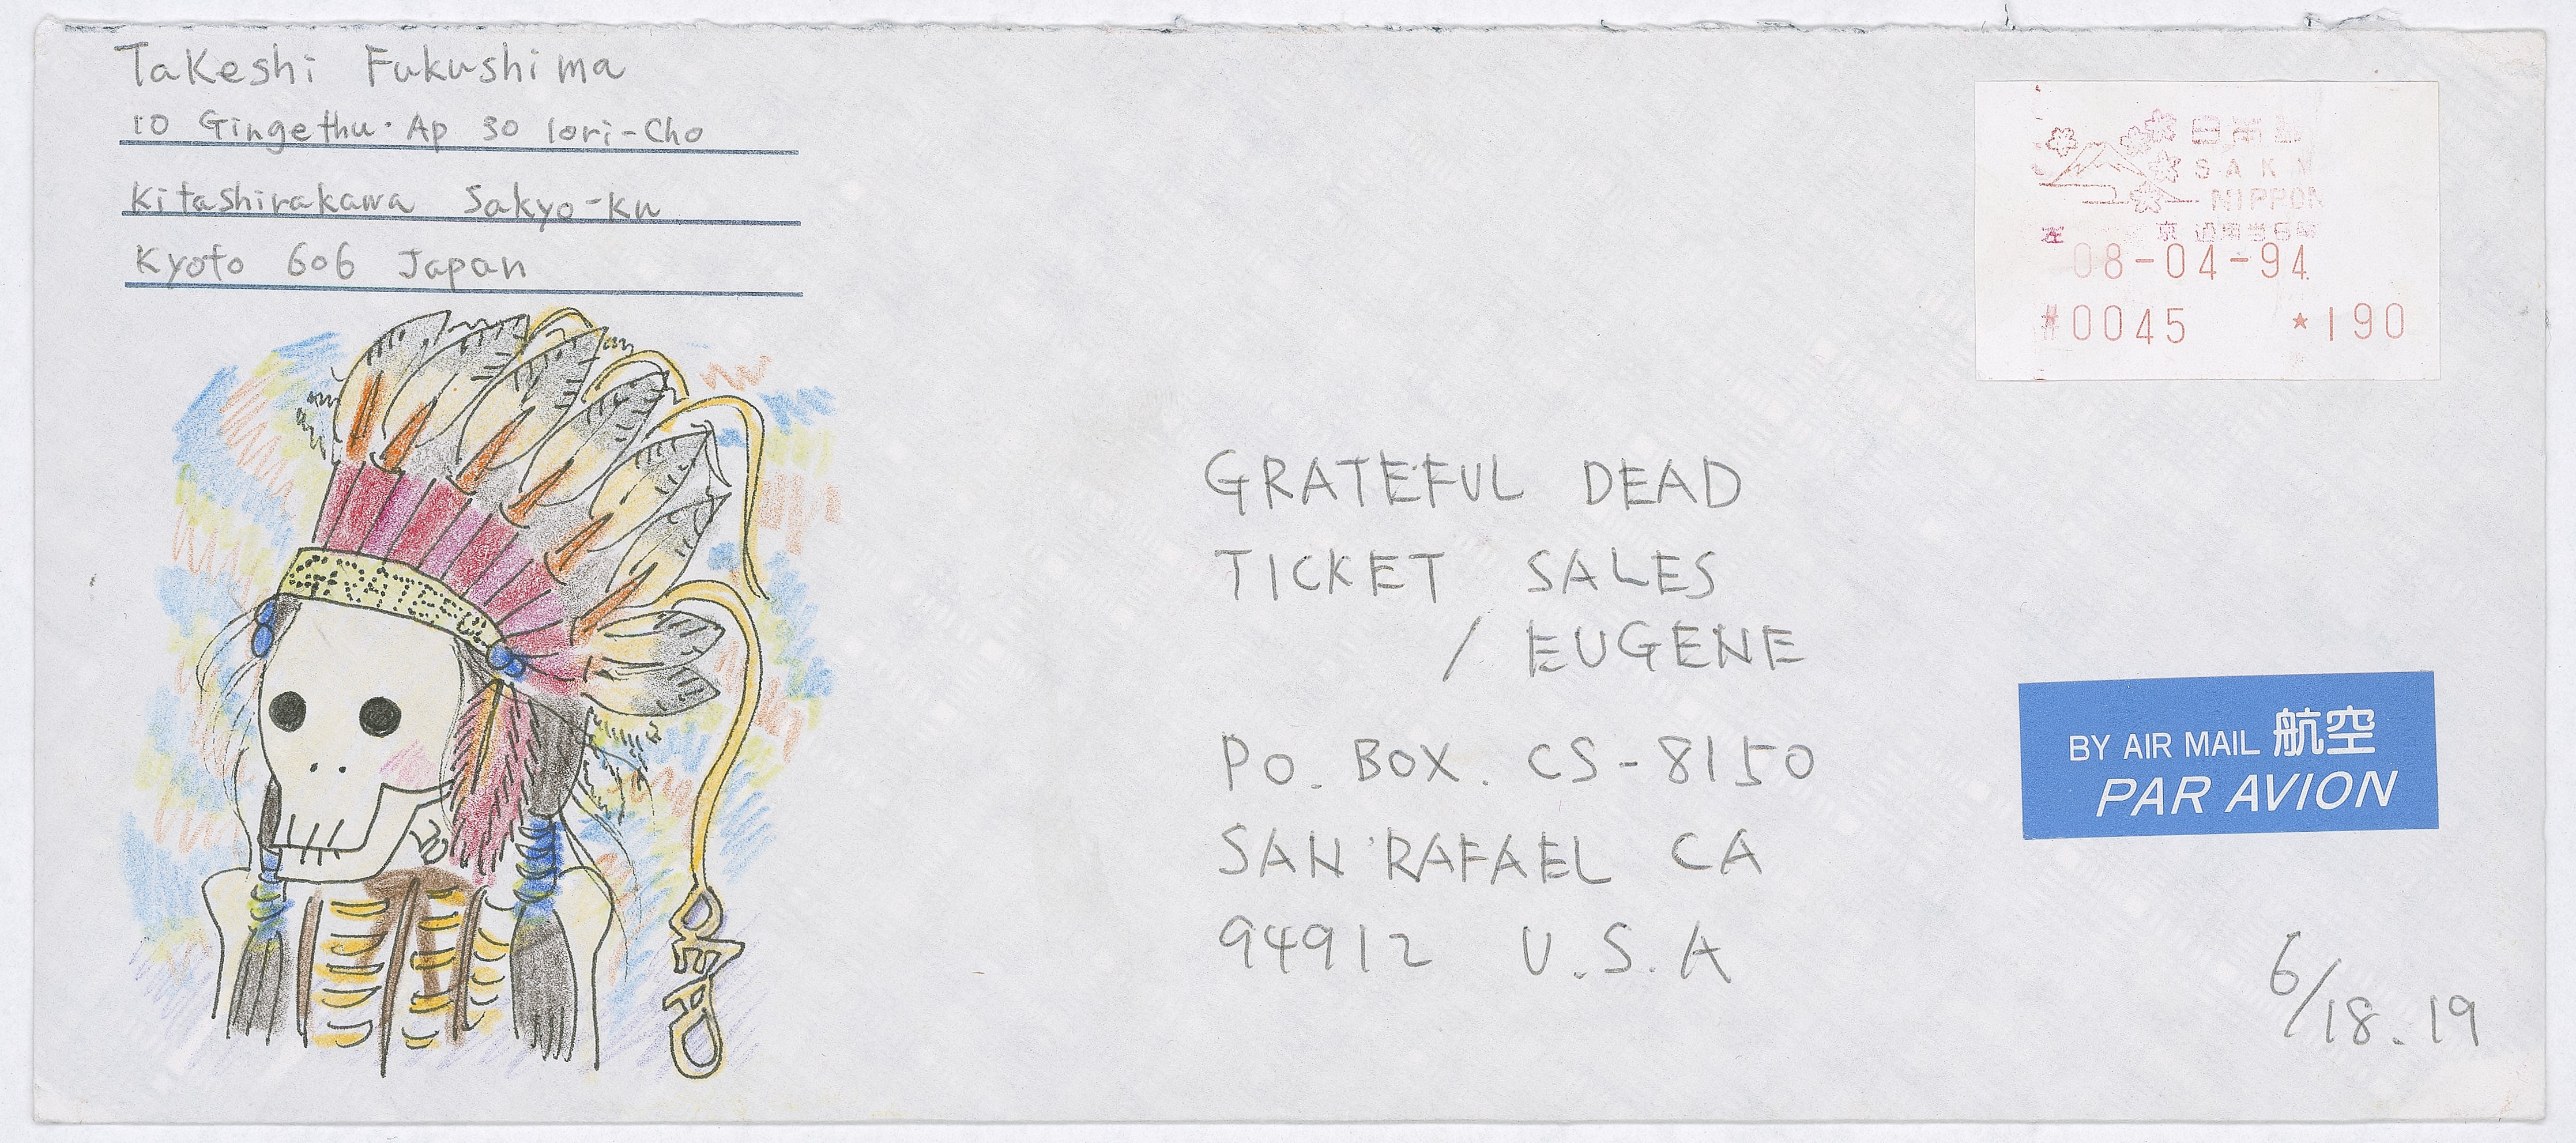 Takeshi Fukushima
10 Gingethu. Ap 30 Iori-Cho
Kitashirakawa Sakyo-Ku
Kyoto 606 Japan
日本
SAK
NIPPON
左 京
08-04-94
#0045 *190
GRATEFUL DEAD
TICKET SALES
/ EUGENE
P.O. BOX. CS-8150
SAN RAFAEL CA
94912 U.S.A
BY AIR MAIL 航空
PAR AVION
6/18.19
GRATEFUL
DEAD